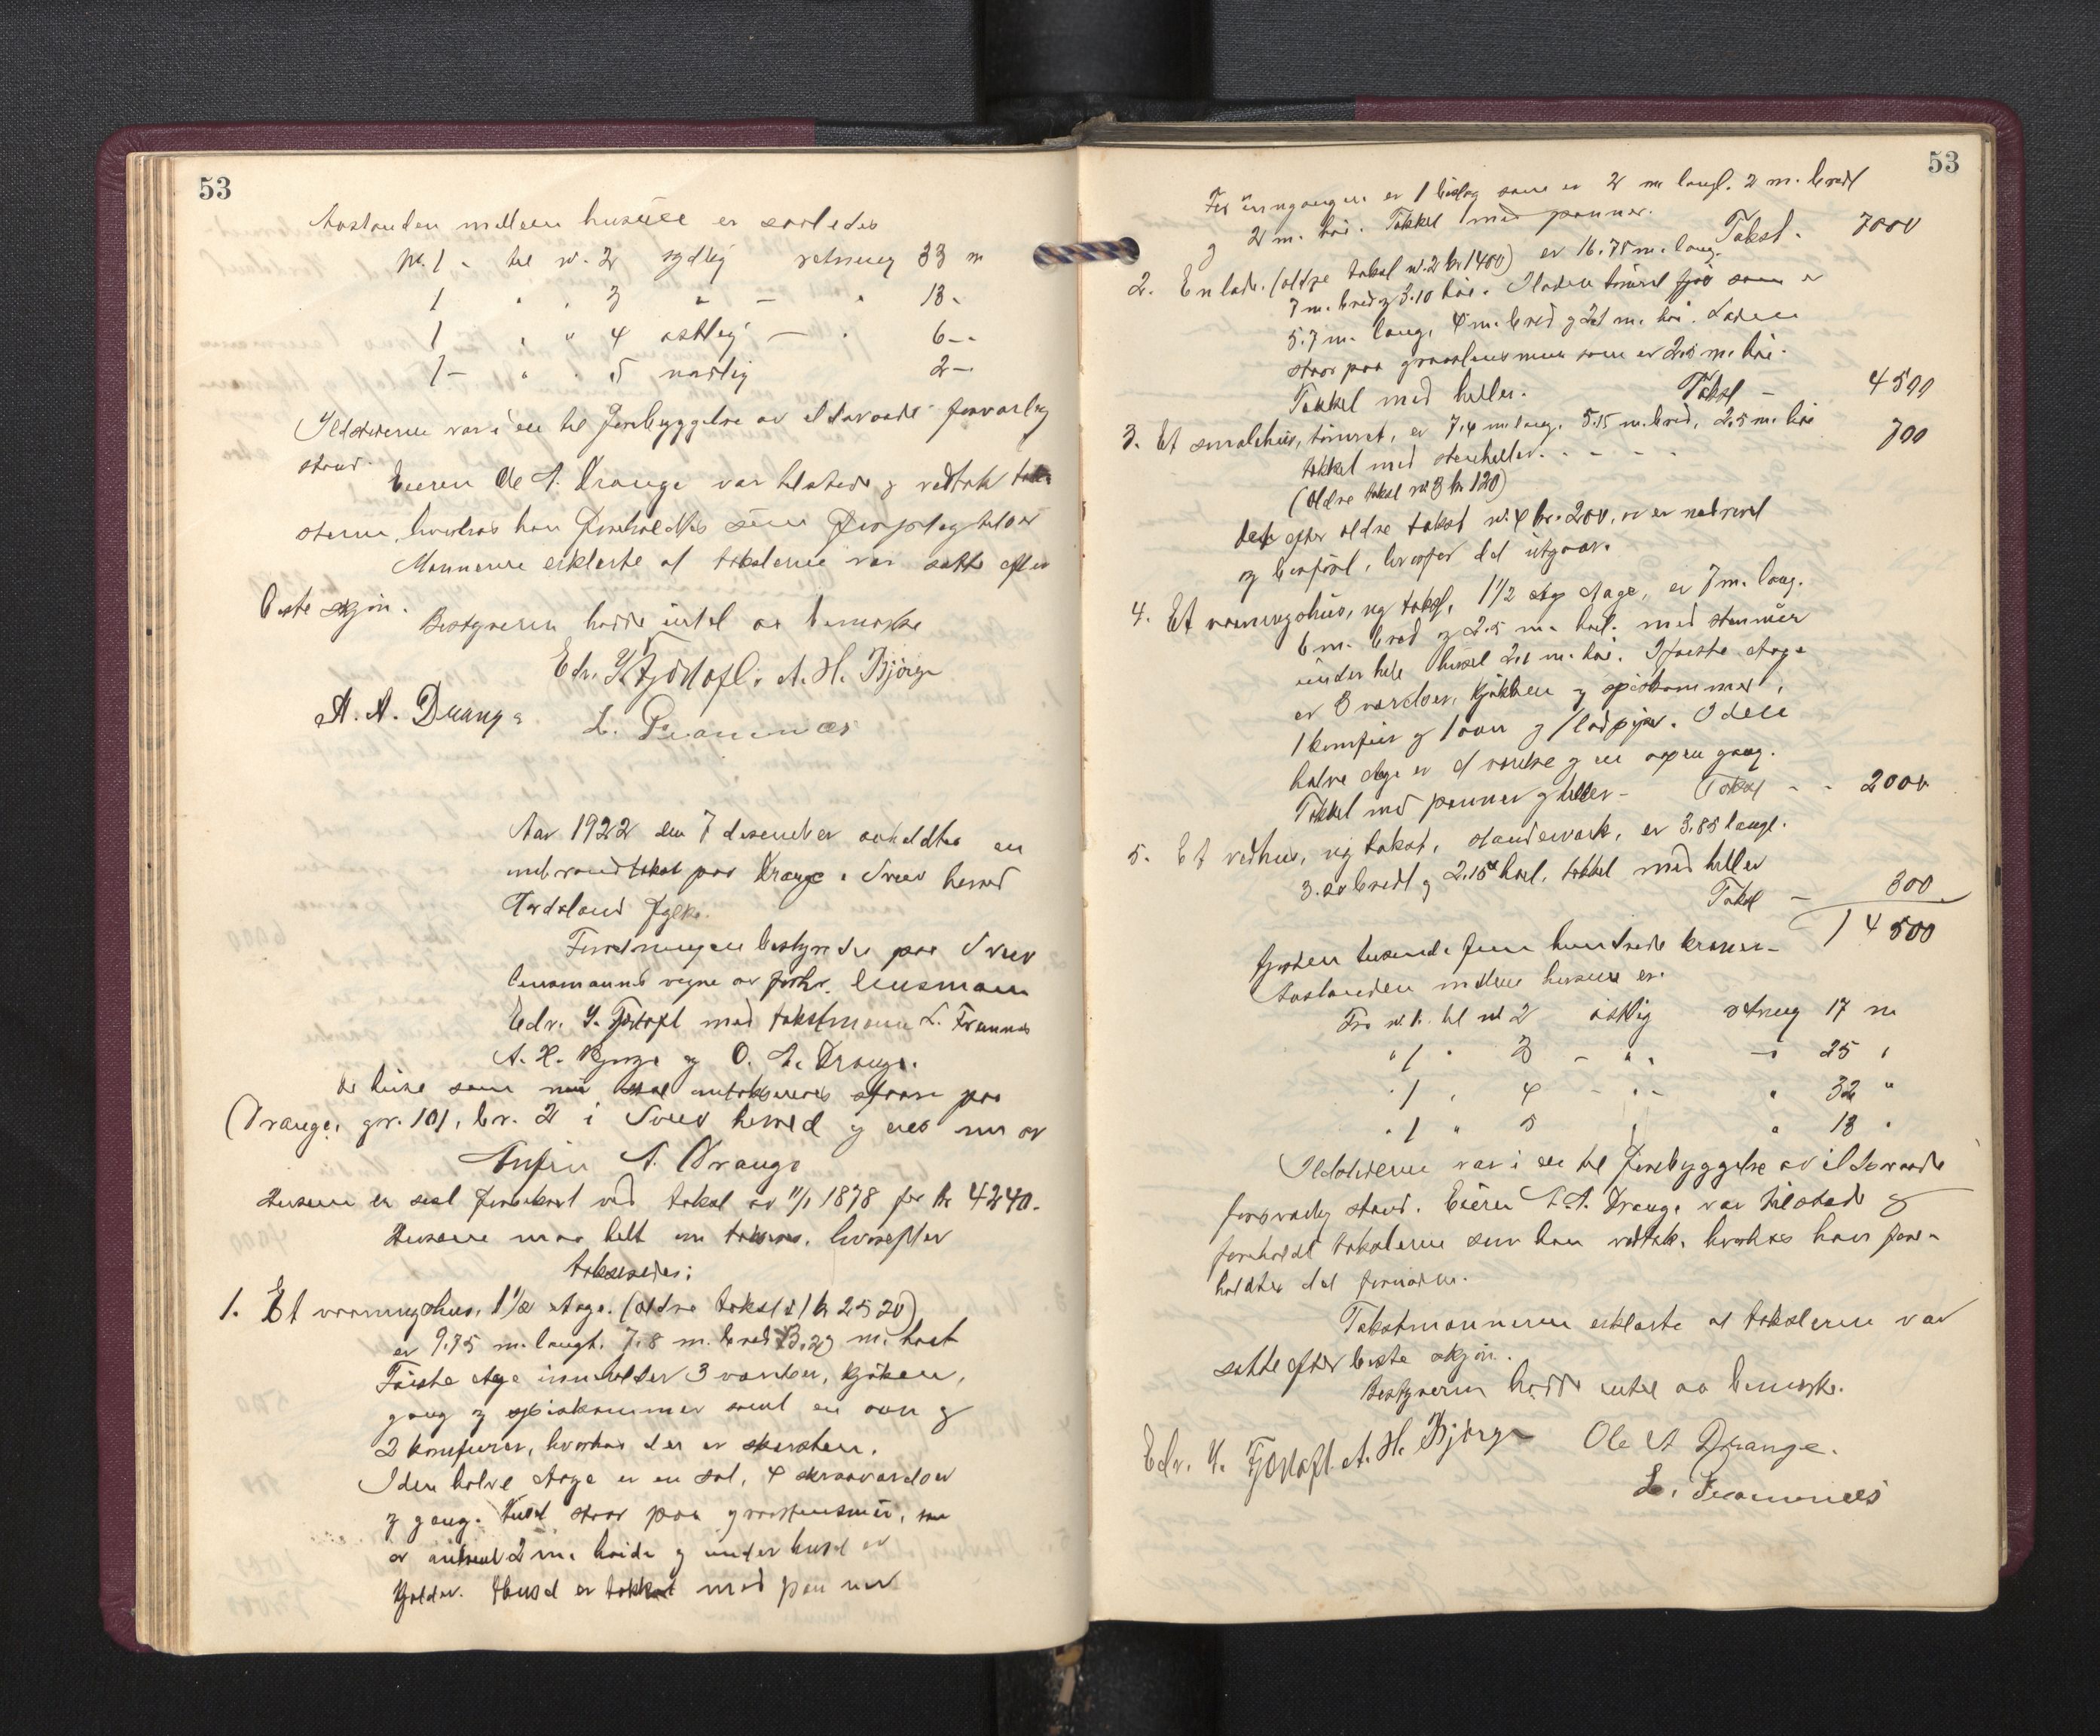 53
Avstanden mellem husene er saaledes
Nr. 1 - til nr. 2 sydlig retning 33 m
1 " " 3 " — " 13 -
1 " " 4 østlig — " 6 -
1 - " " 5 nordlig 2 -
Ildstederne var i en til forebyggelse av ildsvaade forsvarlig
stand.
Eieren Ole A. Drange var tilstede og vedtok tak-
sterne, hvorhos han foreholdtes sine forpligtelser
Mannerne erklærte at takstene var satte efter
beste skjøn.
Bestyreren hadde intet at bemerke
Edv. Y. Fjortoft. A. H. Bjørge
A. A. Drange L. Framnæs
Aar 1922 den 7 desember avholdtes en
ombrandtakst paa Drange i Sveio herred
Hordaland fylke.
Forretningen bestyredes paa Sveio
lensmannd vegne av forhv. lensmann
Edv. Y. Fjortoft med takstmenn L. Framnes
A. H. Bjørge og O. A. Drange.
De huse som nu skal omtakseres staar paa
Drange, gr. 101, br. 2 i Sveio herred og eies nu av
Anfin A. Drange
Husene er sist forsikret ved takst av 11/1 1878 for kr 4240.
Husene maa helt om takseres, hvorefter
takseredes:
1. Et vaaningshus, 1½ etage. (ældre takst nr 1 kr 2520)
er 9.75 m. langt. 7.8 m. bred 3.20 m. høit
Første etage inneholder 3 værelser, kjøken,
gang og spiskammer samt en ovn og
2 komfurer, hvorhos der er skorsten.
I den halve etage er en sal, 4 skraaværelser
og gang. Huset staar paa graastensmur, som
er antrent 2 m. høide og under huset er
kjelder. Huset er tækket med panner
53
For inngangen er 1 bislag som er 2 m langt. 2 m. bredt
og 2 m. høi. Tækket med panner.
Takst - 7000
2. En lade. (ældre takst nr. 2 kr 1400) er 16.75 m. lang.
7 m. bred og 3.10 høi. I laden tømret fjøs som er
5.7 m. lang, 4 m. bred og 2.1 m. høi. Laden
staar paa graastensmur som er 2.5 m. høi.
Tækket med heller. Takst - 4500
3. Et smalehus, tømret, er 7.4 m. lang. 5.15 m. bred, 2.5 m. høi
tækket med stenheller. - - - - 700
(Ældre takst nr 3 kr 120)
efter ældre takst nr. 4 kr. 200, er nedrevet
og bortført, hvorfor det utgaar.
4. Et vaaningshus, ny takst, 1½ etage, er 7 m. lang.
6 m. bred og 2.5 m. høit. med stenmur
under hele huset 2.1 m. høi. I første etage
er 3 værelser, kjøkken og spiskammer,
1 komfur og 1 ovn og 1 ladpipe. I den
halve etage er et værelse og en aapen gang.
Tækket med panner og heller - Takst - - 2000
5. Et vedhus, ny takst, standerverk, er 3.85 langt.
3.20 bredt og 2.15 høit, tækket med heller
Takst - 300
14500
fjorten tusende fem hundrede kroner -
Avstanden mellem husene er:
Fra nr. 1 til nr 2 østlig retning 17 m
" 1 " 3 - " " - " 25 "
" 1 " 4 - " - " 32 "
" 1 " 5 " 13 "
Ildstederne var i en til forebyggelse av ildsvaade
forsvarlig stand. Eieren A. A. Drange var tilstede og
foreholdt takstene som han vedtok, hvorhos han fore-
holdtes det fornødne.
Takstmennene erklærte at takstene var
satte efter beste skjøn.
Bestyreren hadde intet at bemerke.
Edv. Y. Fjortoft. A. H. Bjørge Ole A Drange.
L. Framnæs